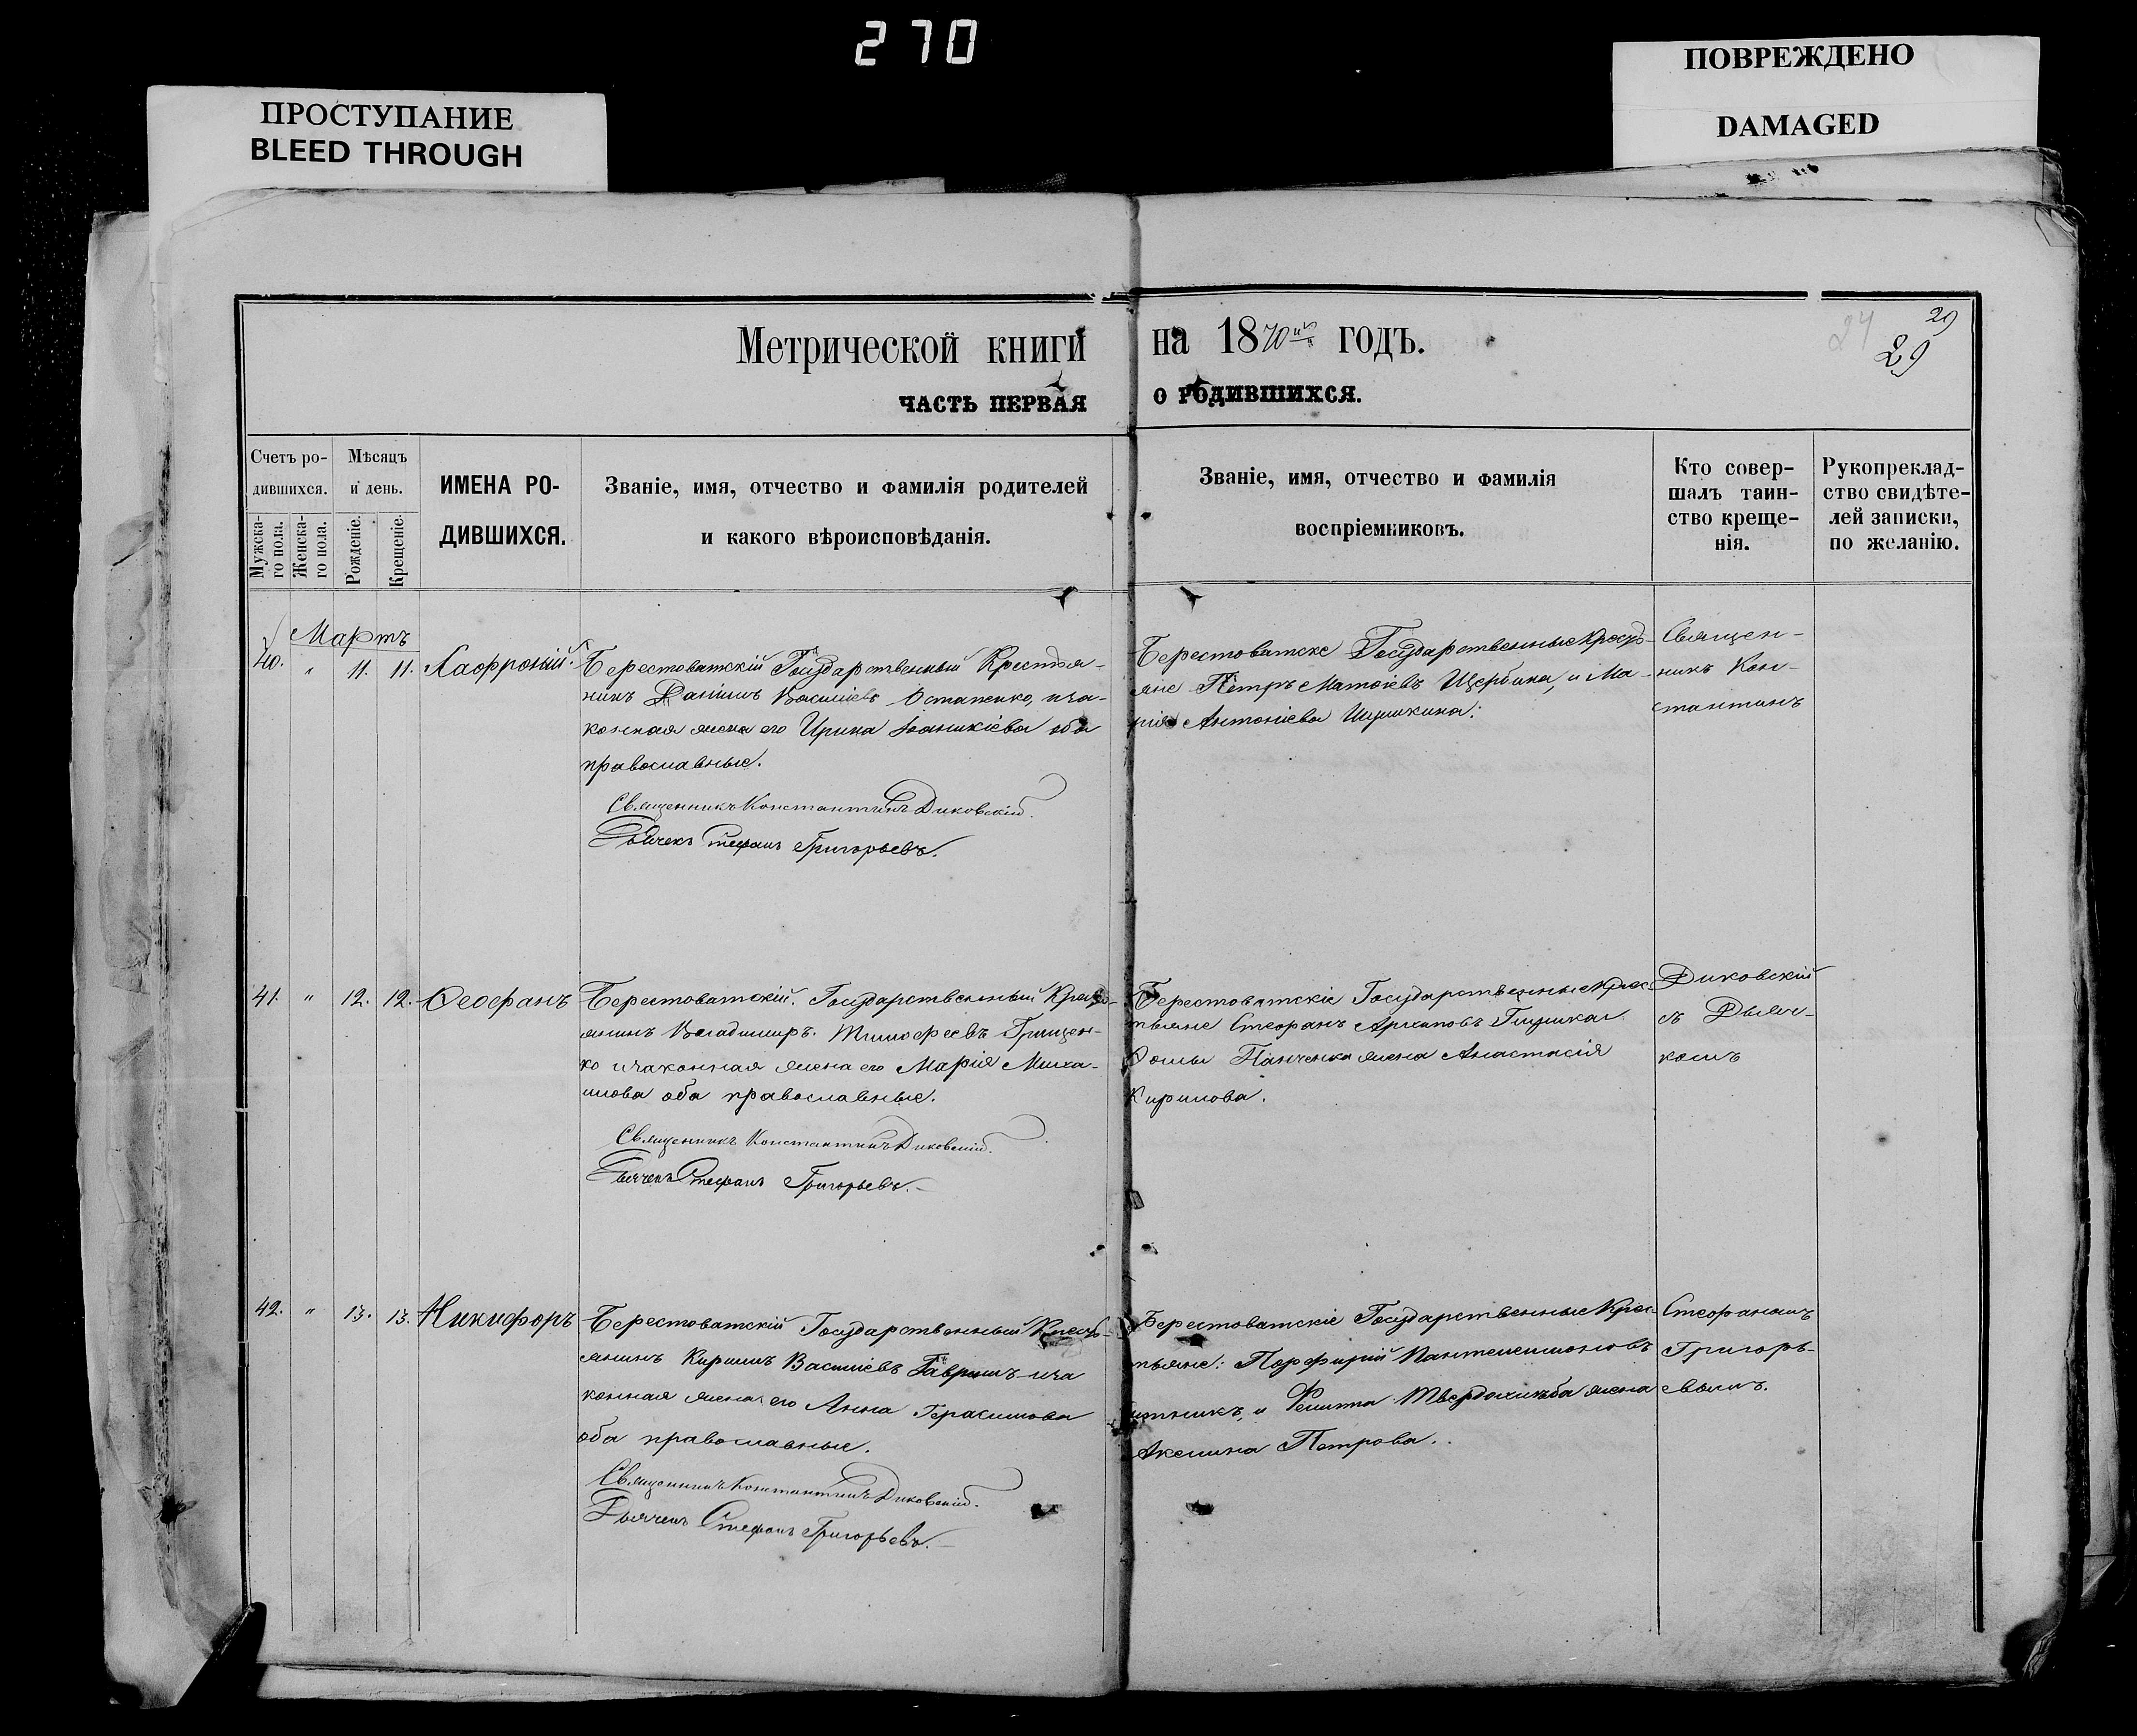 270
ПРОСТУПАНИЕ
BLEED THROUGH
ПОВРЕЖДЕНО
DAMAGED
Метрической книги на 1870й годъ.
29
24
29
ЧАСТЬ ПЕРВАЯ О РОДИВШИХСЯ.
Счетъ ро-
дившихся.
Мужска-
го пола.
Женска-
го пола.
Мѣсяцъ
и день.
Рожденіе.
Крещеніе.
ИМЕНА РО-
ДИВШИХСЯ.
Званіе, имя, отчество и фамилія родителей
и какого вѣроисповѣданія.
Званіе, имя, отчество и фамилія
воспріемниковъ.
Кто совер-
шалъ таин-
ство креще-
нія.
Рукоприклад-
ство свидѣте-
лей записки,
по желанію.
Мартъ
40. " 11. 11.
Берестоватскій Государственный Крестья-
нинъ Даніилъ Василіевъ Остапенко, и за-
конная жена его Ирина Іоаникіева оба
православные.
Священникъ Константинъ Диковскій.
Дьячекъ Стефанъ Григорьевъ.
Берестоватскіе Государственные Кресть-
яне Петръ Матѳіевъ Щербина, и Ма-
рія Антоніева
Священ-
никъ Кон-
стантинъ
41. " 12. 12. Ѳеофанъ
Берестоватскій Государственный Кресть-
янинъ Владимиръ Тимофеевъ Грищен-
ко и законная жена его Марія Миха-
илова оба православные.
Священникъ Константинъ Диковскій.
Дьячекъ Стефанъ Григорьевъ.
Берестоватскіе Государственные Крес-
тьяне Стефанъ Архиповъ
Ѳомы Панченка жена Анастасія
Кирилова.
Диковскій
съ Дьяч-
комъ
42. " 13. 13. Никифоръ
Берестоватскій Государственный Кресть-
янинъ Кирилъ Василіевъ Гаврилъ и за
конная жена его Анна Герасимова
оба православные.
Священникъ Константинъ Диковскій.
Дьячекъ Стефанъ Григорьевъ.
Берестоватскіе Государственные Крес-
тьяне: Порфирій Пантелеимоновъ
и Филиппа Твердохлеба жена
Акелина Петрова.
Стефаномъ
Григорь-
евымъ.